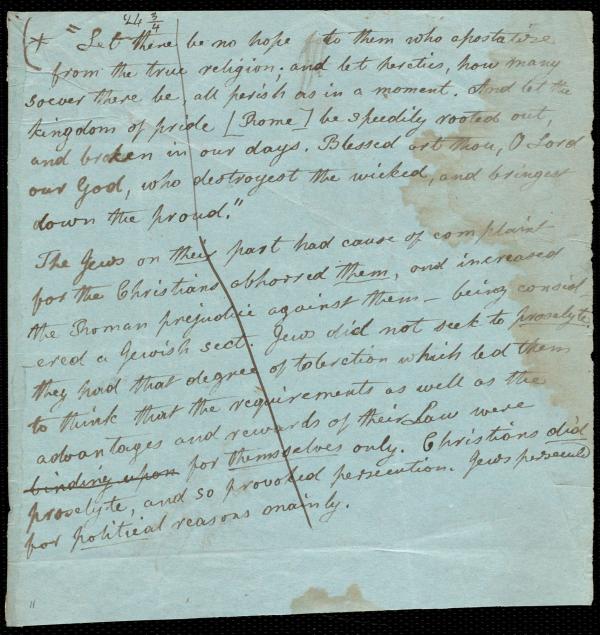 44 3/4
(+ "Let there be no hope to them who apostatize
from the true religion; and let heretics, how many
soever there be, all perish as in a moment. And let the
kingdom of pride [Rome] be speedily rooted out,
and broken in our days. Blessed art thou, O Lord
our God, who destroyest the wicked, and bringest
down the proud."
The Jews on their part had cause of complaint
for the Christians abhorred them, and increased
the Roman prejudice against them – being consid-
-ered a Jewish sect. Jews did not seek to proselyte.
they had that degree of toleration which led them
to think that the requirements as well as the
advantages and rewards of their Law were
binding upon for themselves only. Christians did
proselyte, and so provoked persecution. Jews persecuted
for political reasons mainly.
11